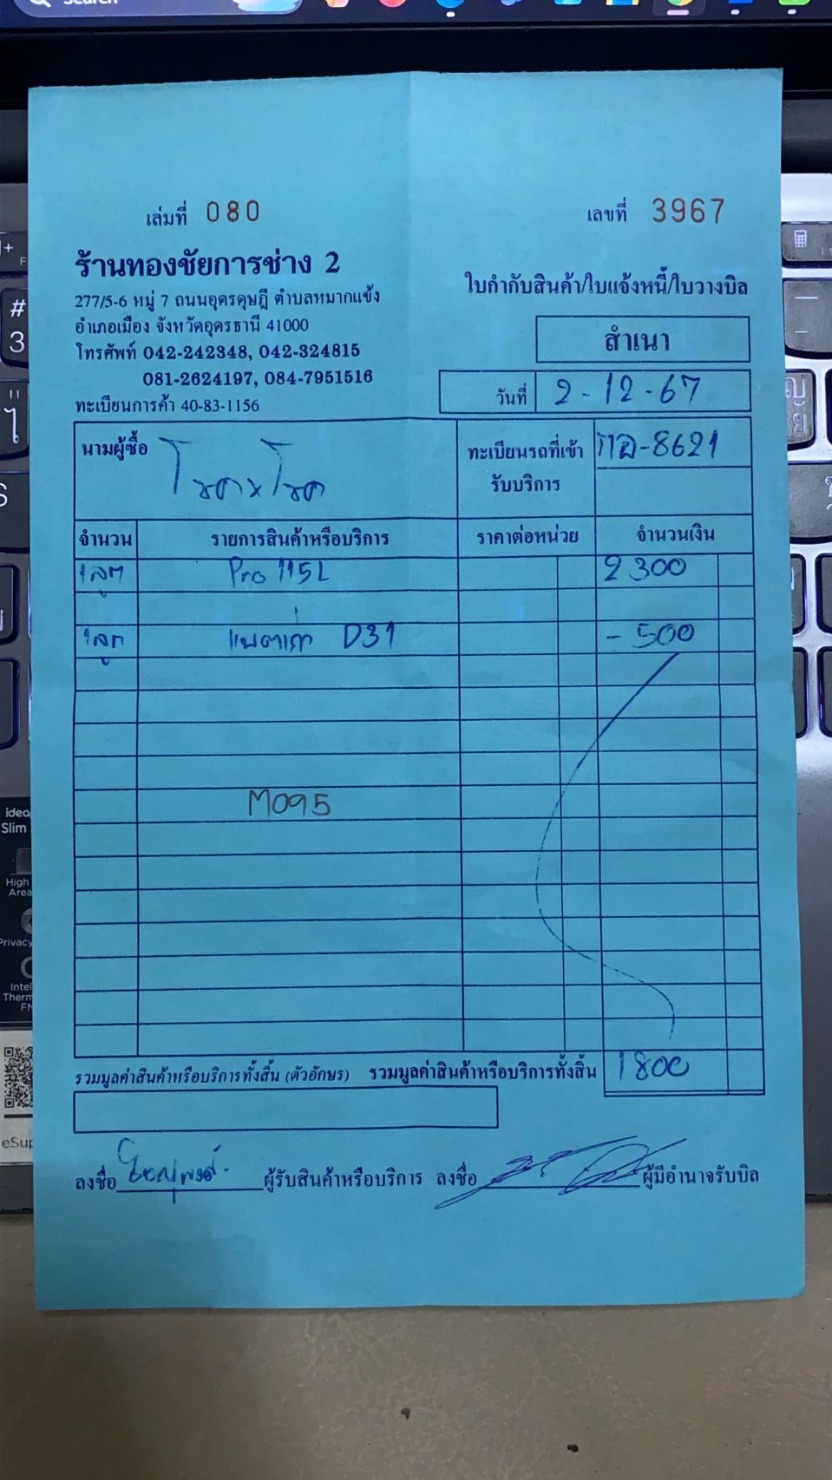 Search
เล่มที่ 080
เลขที่ 3967
ร้านทองชัยการช่าง 2
277/5-6 หมู่ 7 ถนนอุดรดุษฎี ตำบลหมากแข้ง
อำเภอเมือง จังหวัดอุดรธานี 41000
โทรศัพท์ 042-242348, 042-324815
081-2624197, 084-7951516
ทะเบียนการค้า 40-83-1156
ใบกำกับสินค้า/ใบแจ้งหนี้/ใบวางบิล
สำเนา
วันที่ 2-12-67
นามผู้ซื้อ
ทะเบียนรถที่เข้า -8621
รับบริการ
จำนวน รายการสินค้าหรือบริการ ราคาต่อหน่วย จำนวนเงิน
1 ลูก Pro 115L 2300
1 ลูก แบตเก่า D31 -500
M095
รวมมูลค่าสินค้าหรือบริการทั้งสิ้น (ตัวอักษร) รวมมูลค่าสินค้าหรือบริการทั้งสิ้น 1800
ลงชื่อ ผู้รับสินค้าหรือบริการ ลงชื่อ ผู้มีอำนาจรับบิล
#
3
Slim
High
Area
Privacy
Intel